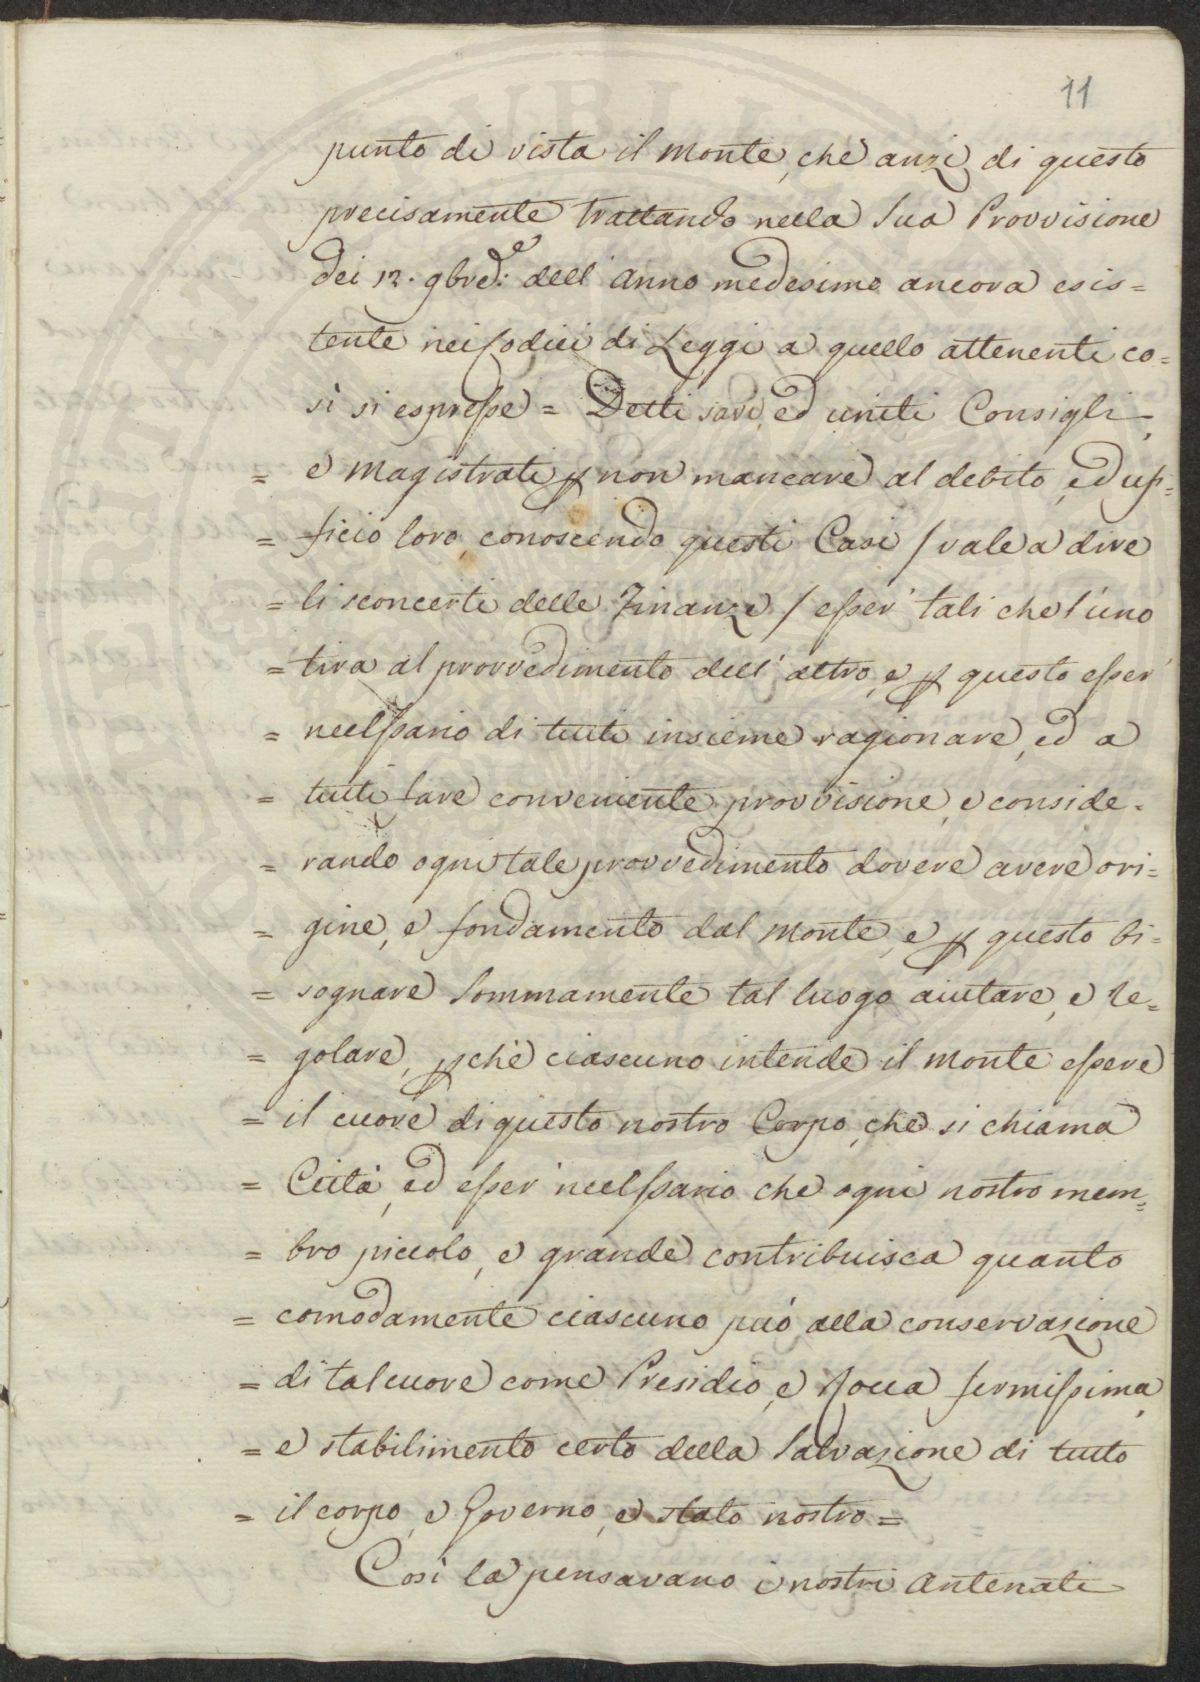 11
punto di vista il Monte, che anzi di questo
precisamente trattando nella Sua Provvisione
dei 12. 9bre: dell' Anno medesimo ancora esis=
tente nei Codici di Leggi a quello attenenti co=
sì si espresse = Detti savi, ed uniti Consigli,
= e Magistrati p non mancare al debito, ed uf=
= ficio loro conoscendo questi Casi / vale a dire
= li sconcerti delle Finanze / esser' tali che l'uno
= tira al provvedimento dell' altro, e p questo esser'
= necessario di tutti insieme ragionare, ed a
= tutti fare conveniente provvisione, e conside=
= rando ogni tale provvedimento dovere avere ori=
= gine, e fondamento dal Monte, e p questo bi=
= sognare Sommamente tal luogo aiutare, e re=
= golare, pchè ciascuno intende il Monte essere
= il cuore di questo nostro Corpo, che si chiama
= Città, ed esser' necessario che ogni nostro mem=
= bro piccolo, e grande contribuisca quanto
= comodamente ciascuno può alla conservazione
= di tal cuore come Presidio, e Rocca fermissima,
= e stabilimento certo della Salvazione di tutto
= il corpo, e Governo, e stato nostro =
Così la pensavano i nostri Antenati